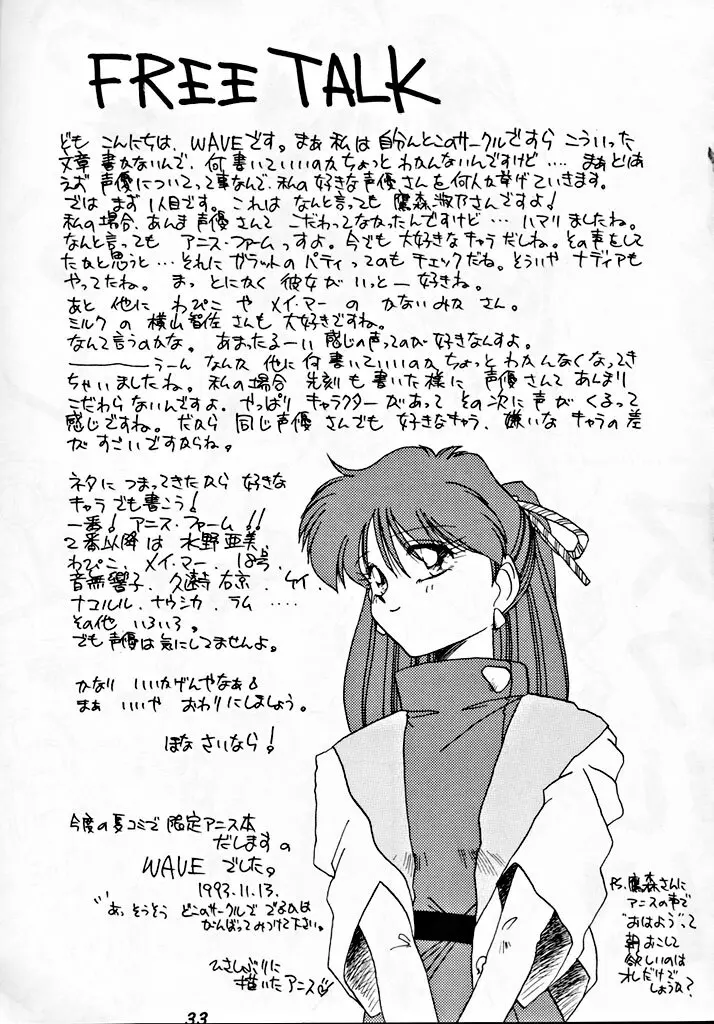 FREE TALK
ども こんにちは、WAVEです。まぁ 私は 自分んとこのサークルですら こういった
文章 書かないんで、何書いていいのか ちょっと わかんないんですけど‥‥ まぁ とりあ
えず 声優についてって事なんで、私の好きな声優さんを何人か挙げていきます。
では まず 1人目です。これは なんと言っても 鷹森淑乃さんですよ!
私の場合、あんま声優さんて こだわってなかったんですけど‥‥ ハマリましたね。
なんと言っても アニス・ファームっすよ。今でも 大好きなキャラだしね。その声をして
たかと思うと‥‥それに ガラットの パティってのもチェックだね。そういや ナディアも
やってたね。 まっ とにかく 彼女が いっとー 好きね。
あと 他に わぴこ や メイ・マー の かないみか さん。
ミルク の 横山智佐 さんも 大好きですね。
なんて言うのかな。あまったるーい 感じの声ってのが好きなんすよ。
――――うーん なんか 他に 何 書いていいのか ちょっと わかんなくなってき
ちゃいましたね。私の場合 先刻も 書いた様に 声優さんて あんまり
こだわらないんですよ。やっぱり キャラクターがあって その次に 声が くるって
感じですね。だから 同じ声優 さんでも 好きなキャラ、嫌いな キャラの差
が すごいですからね。
ネタに つまってきたから 好きな
キャラ でも書こう!
一番! アニス・ファーム!!
2番以降は 水野 亜美、
わぴこ、メイ・マー、18号、
音無響子、久遠寺 右京、ケイ、
ナコルル、ナウシカ、ラム ‥‥
その他 いろいろ。
でも 声優は 気にしてませんよ。
かなり いいかげんやなぁ
まぁ いいや おわりにしましょう。
ほな さいなら!
今度の夏コミで 限定アニス本
だしますの
WAVE でした。
1993.11.13.
あ、そうそう どこのサークルで でるかは
がんばってみつけて下さい。
ひさしぶりに
描いたアニス
P.S. 鷹森さんに
アニスの声で
"おはよう"って
朝 おこして
欲しいのは
オレだけで
しょうか?
33